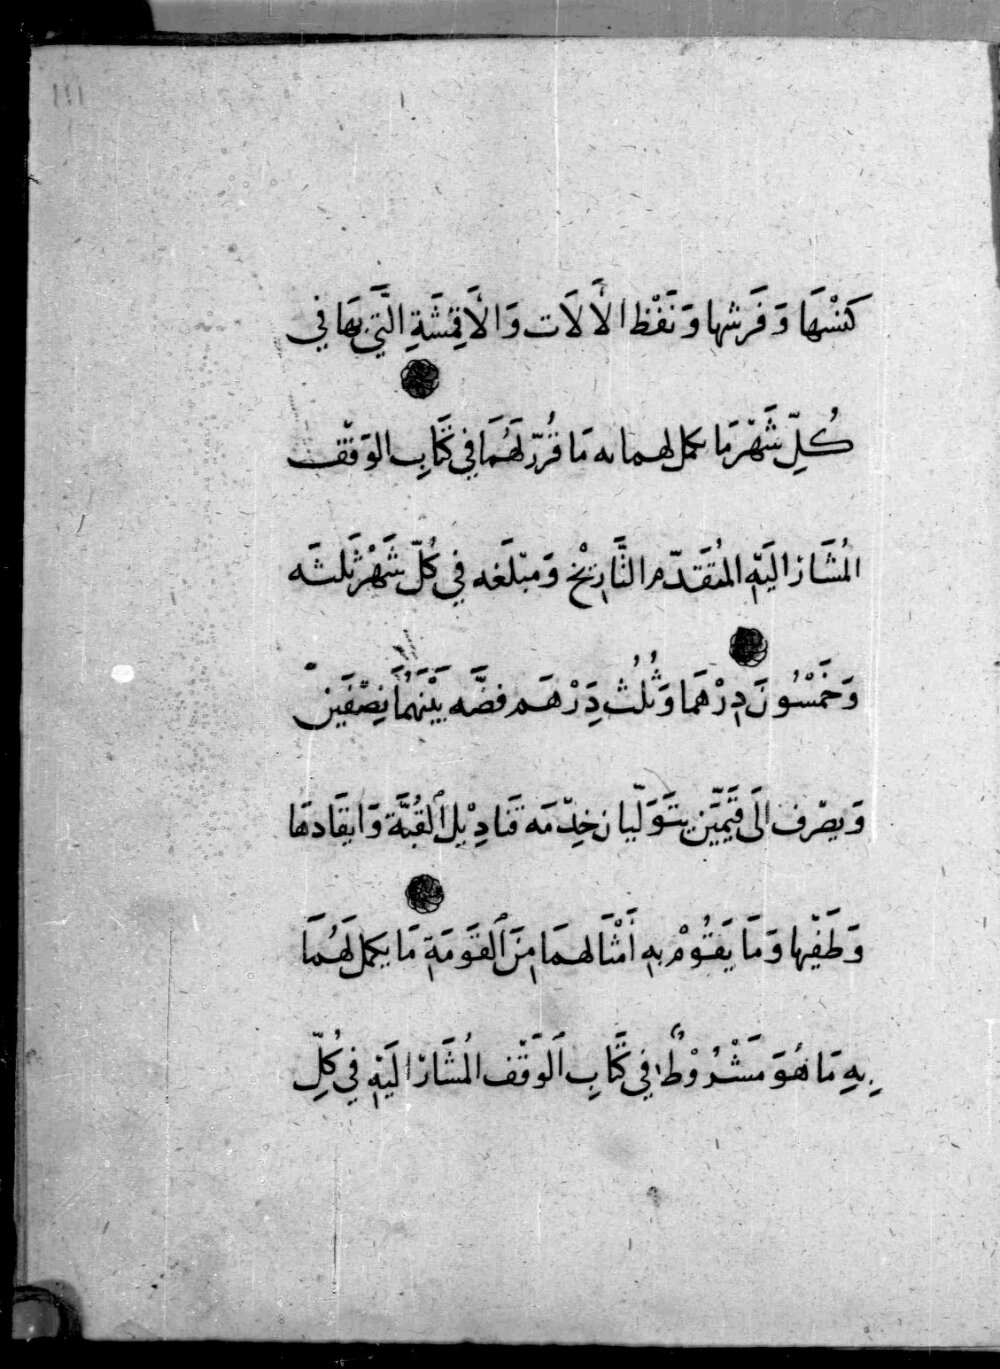 ١١١
كَنْسِهَا وَفَرَشها وَنَفْظ الأَلَات وَالأَقمِشَةِ الَّتِي بِهَا فِي
كُلِّ شَهْرٍ مَا يكمل لهما به مَا قُرِّر لَهُمَا فِي كَتَابِ الوَقْفِ
المُشَارِ اليَهِ المُتَقَدّم التَّارِيْخ وَمَبْلَغه فِي كُلّ شَهْر ثَلثَه
وَخَمْسُونَ دِرْهَمَا وَثُلُث دِرْهَم فضَّه بَيْنَهُمَا نِصْفَيْن
وَيصْرف الَى قَيِّمَيِّن يتَوَلّيان خِدْمَة قَنادِيْل القُبَّة وَايقَادهَا
وَطَفْيها وَمَا يَقُومْ بِهِ أَمْثَالهمَا مِنَ القَوَمَةِ مَا يكمل لَهُمَا
بِهِ مَا هُوَ مَشْرُوْطٌ فِي كَتَابِ الوَقْف المُشَار اليَهِ فِي كُلِّ